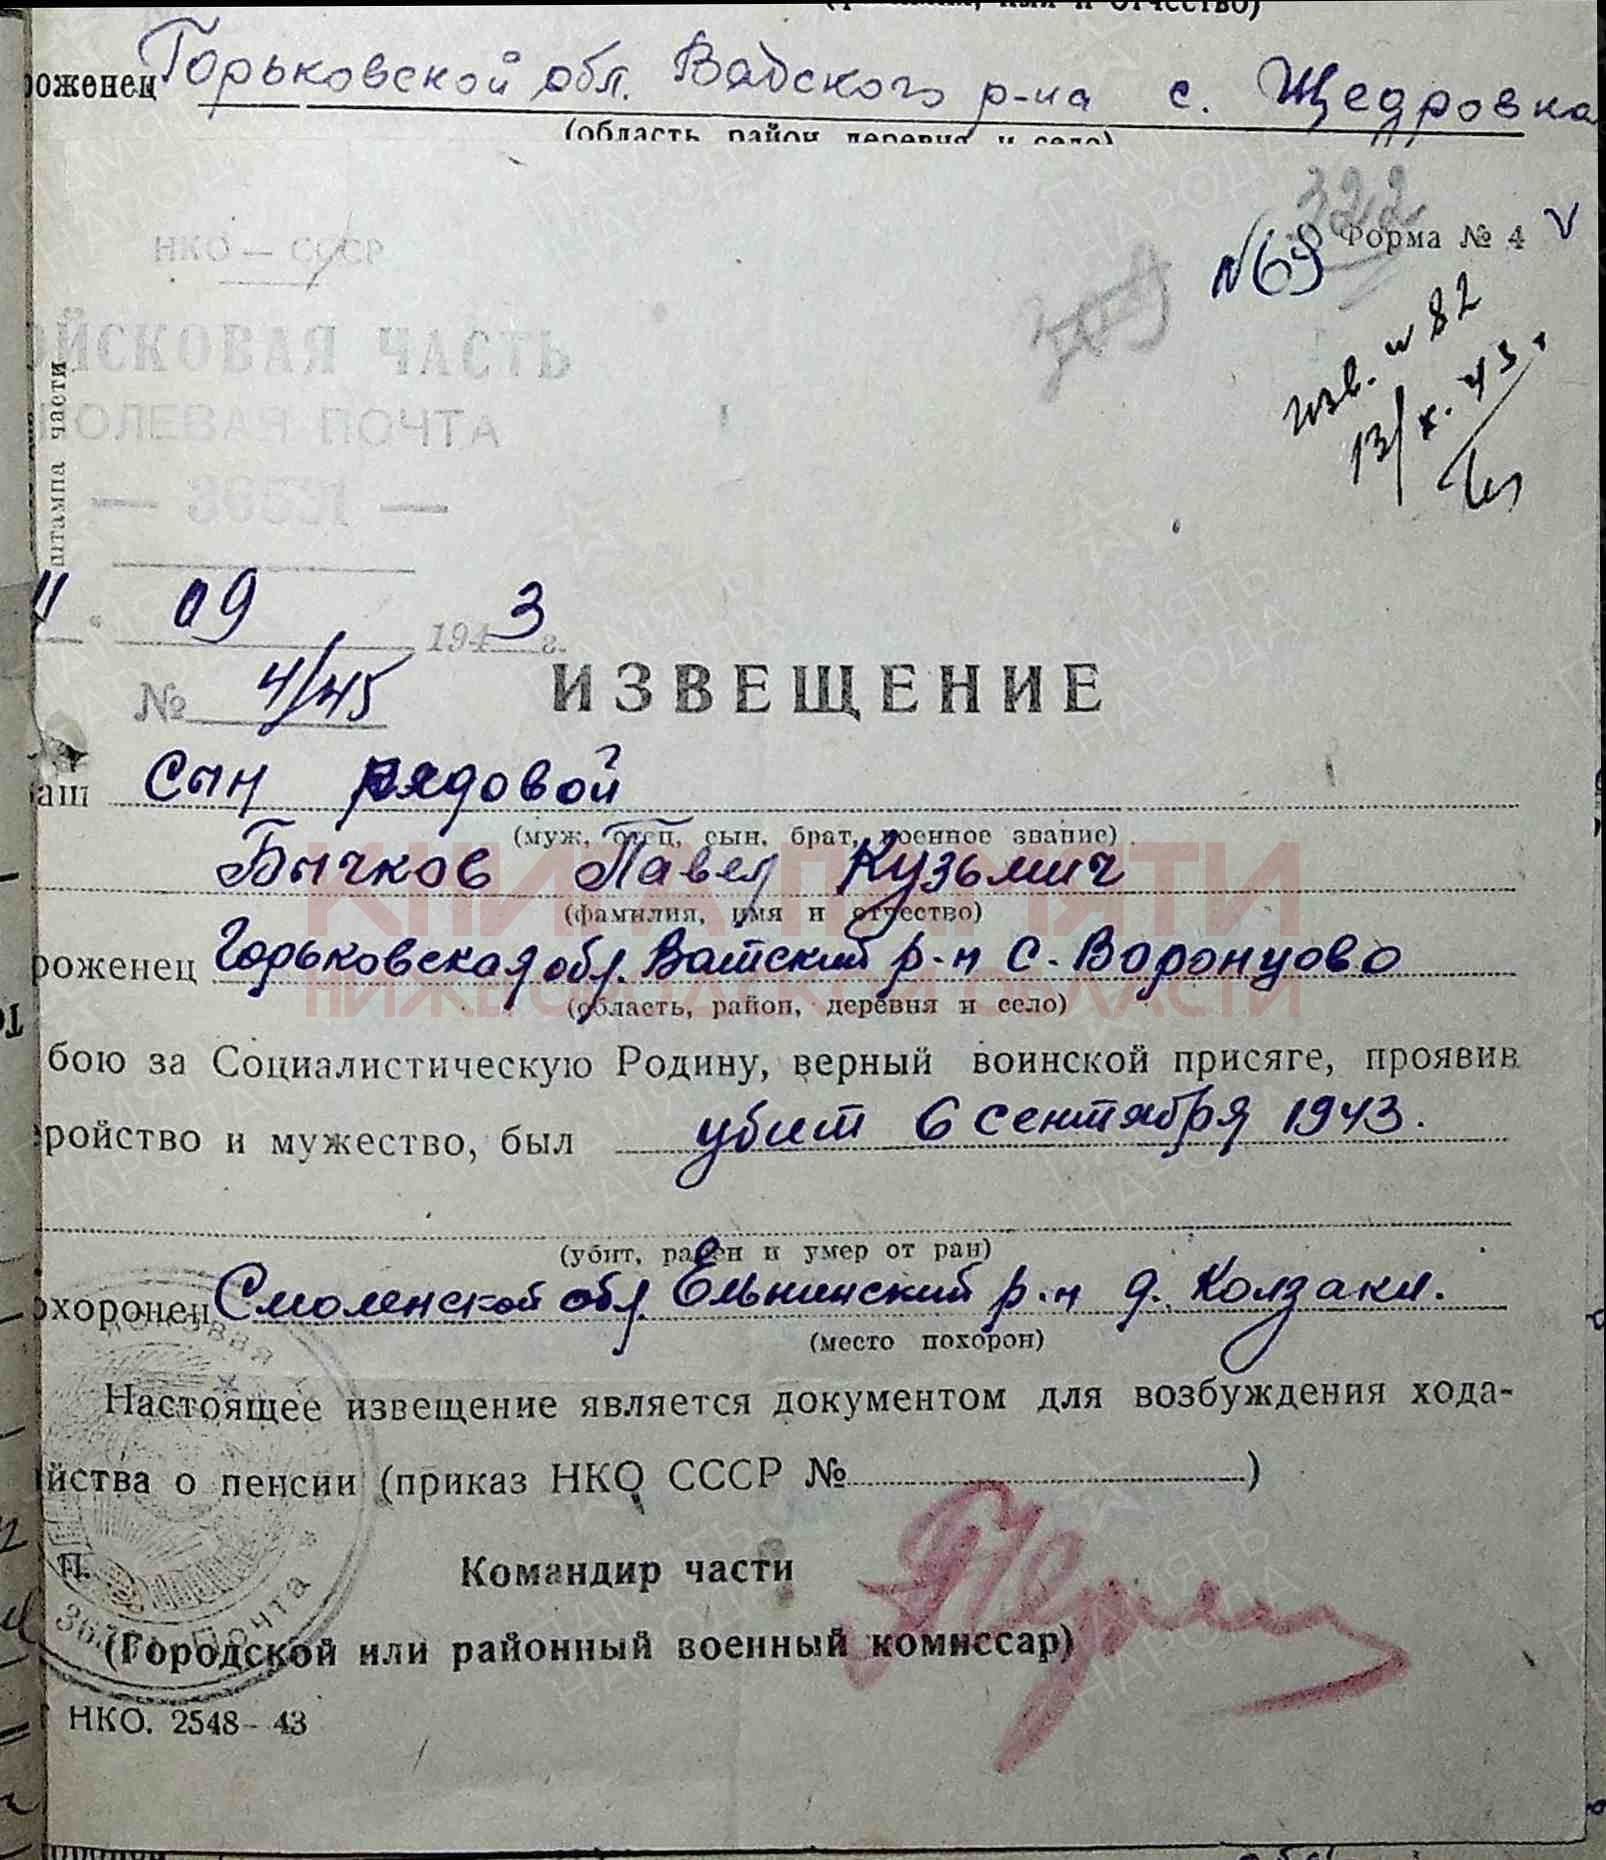 (фамилия, имя и отчество)
роженец Горьковской обл. Вадского р-на с. Щедровка
(область, район, деревня и село)
322
НКО — СССР
№69 Форма № 4 V
ЙСКОВАЯ ЧАСТЬ
изв. № 82
ПОЛЕВАЯ ПОЧТА
13/X. 43.
штампа части
— 36531 —
11 " 09 1943 г.
№ 4/45
ИЗВЕЩЕНИЕ
аш сын рядовой
(муж, отец, сын, брат, военное звание)
Бычков Павел Кузьмич
КНИГА ПАМЯТИ
(фамилия, имя и отчество)
роженец Горьковская обл. Ватский р-н с. Воронцово
НИЖЕГОРОДСКОЙ ОБЛАСТИ
(область, район, деревня и село)
бою за Социалистическую Родину, верный воинской присяге, проявив
ройство и мужество, был убит 6 сентября 1943.
(убит, ранен и умер от ран)
охоронен Смоленской обл. Ельнинский р-н д. Колзаки.
(место похорон)
Настоящее извещение является документом для возбуждения хода-
йства о пенсии (приказ НКО СССР № )
П.
Командир части
Почта
(Городской или районный военный комиссар)
НКО. 2548 - 43
ПАМЯТЬ НАРОДА